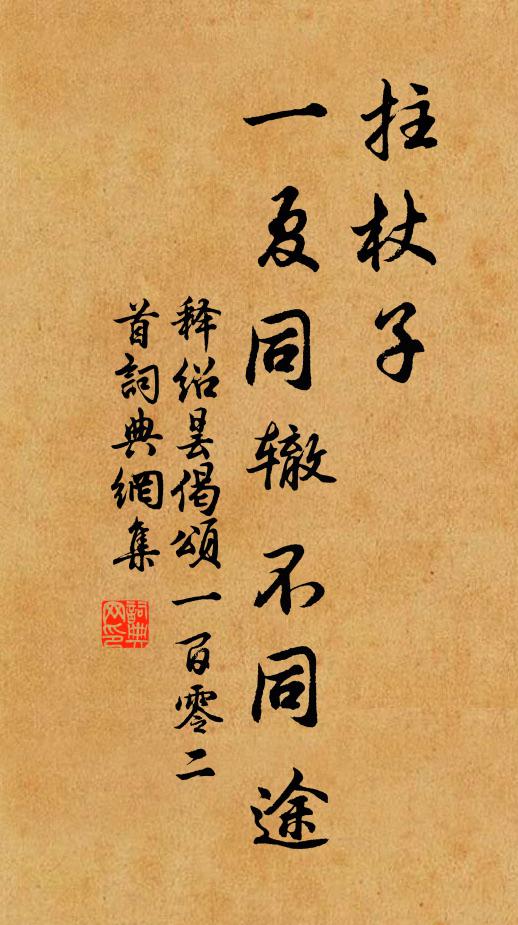 拄杖子
一夏同辙不同途
释绍昙偈颂一百零二
首詞典網集
詞典
网印